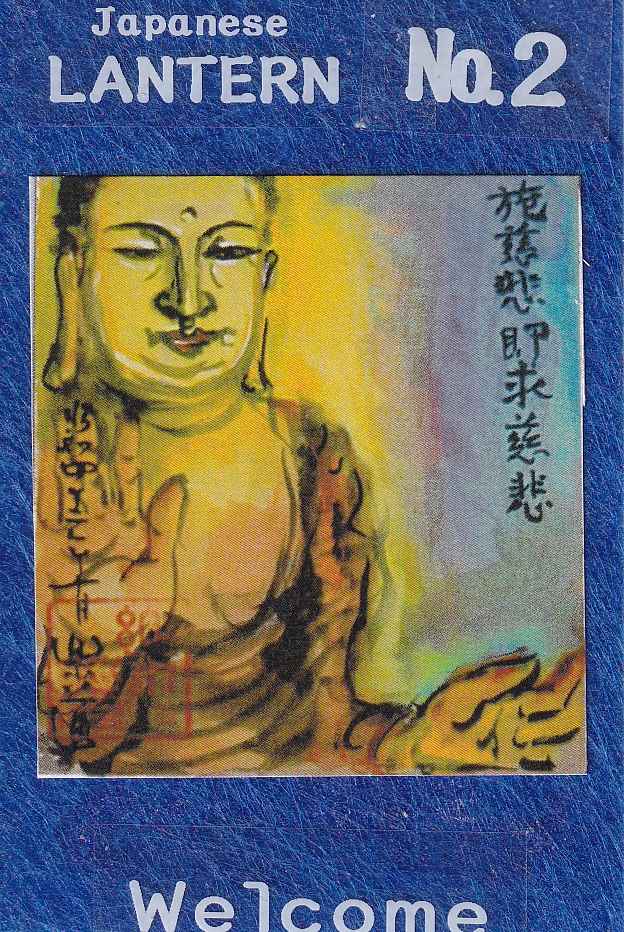 Japanese
LANTERN
No.2
施慈悲即求慈悲
Welcome